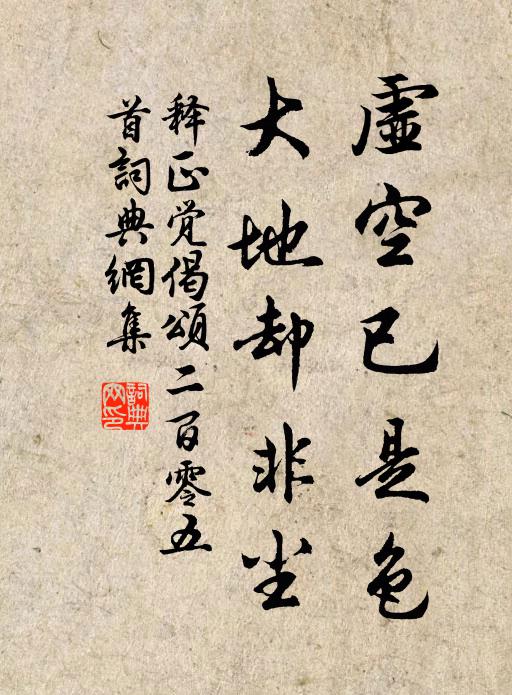 虛空已是色
大地却非尘
释正觉偈頌二百零五
首詞典網集
詞典
网印